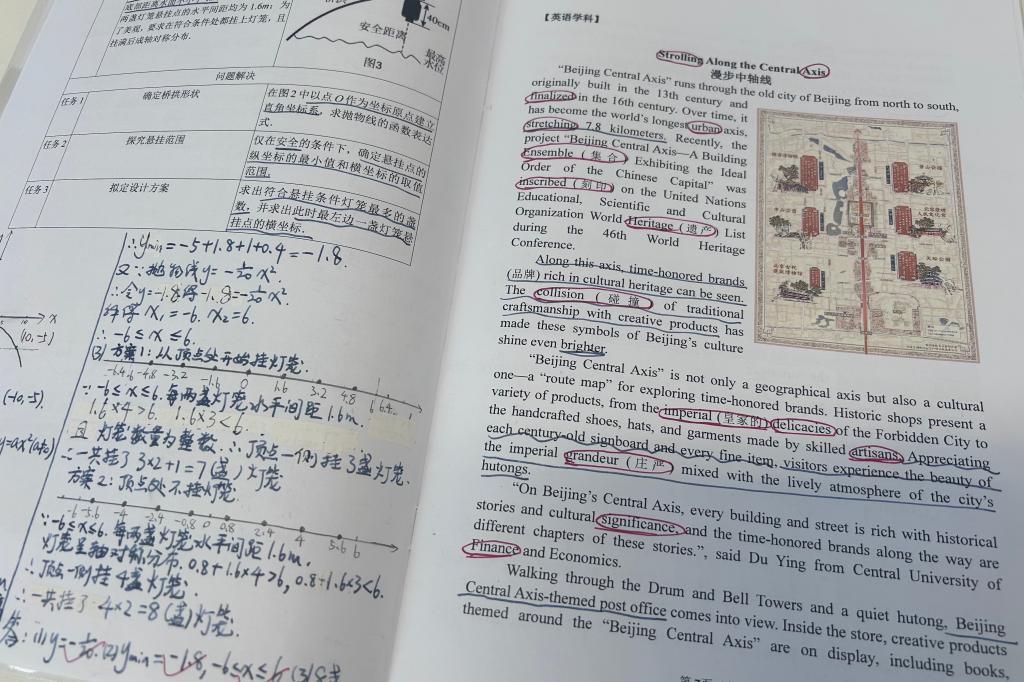 底部距离水面不小于
两盏灯笼悬挂点的水平间距均为1.6m；为
了美观，要求在符合条件处都挂上灯笼，且
挂满后成轴对称分布.
安全距离
40cm
最高
水位
图3
问题解决
任务1 确定桥拱形状 在图2中以点O作为坐标原点建立
直角坐标系，求抛物线的函数表达
式.
任务2 探究悬挂范围 仅在安全的条件下，确定悬挂点的
纵坐标的最小值和横坐标的取值
范围.
任务3 拟定设计方案 求出符合悬挂条件灯笼最多的盏
数，并求出此时最左边一盏灯笼悬
挂点的横坐标.
∴ymin=-5+1.8+1+0.4=-1.8.
又∵抛物线y=-1/20x².
∴令y=-1.8得-1.8=-1/20x².
解得x₁=-6. x₂=6.
∴-6≤x≤6.
(3)方案1:从顶点处开始挂灯笼.
-6.4 -6 -4.8 -3.2 -1.6 0 1.6 3.2 4.8 6 6.4
∵-6≤x≤6.每两盏灯笼水平间距1.6m.
1.6×4>6. 1.6×3<6.
且灯笼数量为整数.∴顶点一侧挂3盏灯笼.
∴一共挂了3×2+1=7(盏)灯笼
方案2:顶点处不挂灯笼.
-6 -5.6 -4 -2.4 -0.8 0 0.8 2.4 4 5.6 6
∵-6≤x≤6.每两盏灯笼水平间距1.6m.
灯笼呈轴对称分布,0.8+1.6×4>6,0.8+1.6×3<6.
∴顶点一侧挂4盏灯笼.
∴一共挂了4×2=8(盏)灯笼.
答:(1)y=-1/20 (2)ymin=-1.8,-6≤x≤6 (3)8盏
x
(10,-5)
(-10,-5).
y=ax²(a≠0)
【英语学科】
Strolling Along the Central Axis
漫步中轴线
“Beijing Central Axis” runs through the old city of Beijing from north to south,
originally built in the 13th century and
finalized in the 16th century. Over time, it
has become the world's longest urban axis,
stretching 7.8 kilometers. Recently, the
project “Beijing Central Axis—A Building
Ensemble（集合）Exhibiting the Ideal
Order of the Chinese Capital” was
inscribed（刻印）on the United Nations
Educational, Scientific and Cultural
Organization World Heritage（遗产）List
during the 46th World Heritage
Conference.
Along this axis, time-honored brands
(品牌) rich in cultural heritage can be seen.
The collision（碰撞）of traditional
craftsmanship with creative products has
made these symbols of Beijing's culture
shine even brighter.
“Beijing Central Axis” is not only a geographical axis but also a cultural
one—a “route map” for exploring time-honored brands. Historic shops present a
variety of products, from the imperial (皇家的) delicacies of the Forbidden City to
the handcrafted shoes, hats, and garments made by skilled artisans. Appreciating
each century-old signboard and every fine item, visitors experience the beauty of
the imperial grandeur (庄严) mixed with the lively atmosphere of the city's
hutongs.
“On Beijing's Central Axis, every building and street is rich with historical
stories and cultural significance, and the time-honored brands along the way are
different chapters of these stories.”, said Du Ying from Central University of
Finance and Economics.
Walking through the Drum and Bell Towers and a quiet hutong, Beijing
Central Axis-themed post office comes into view. Inside the store, creative products
themed around the “Beijing Central Axis” are on display, including books,